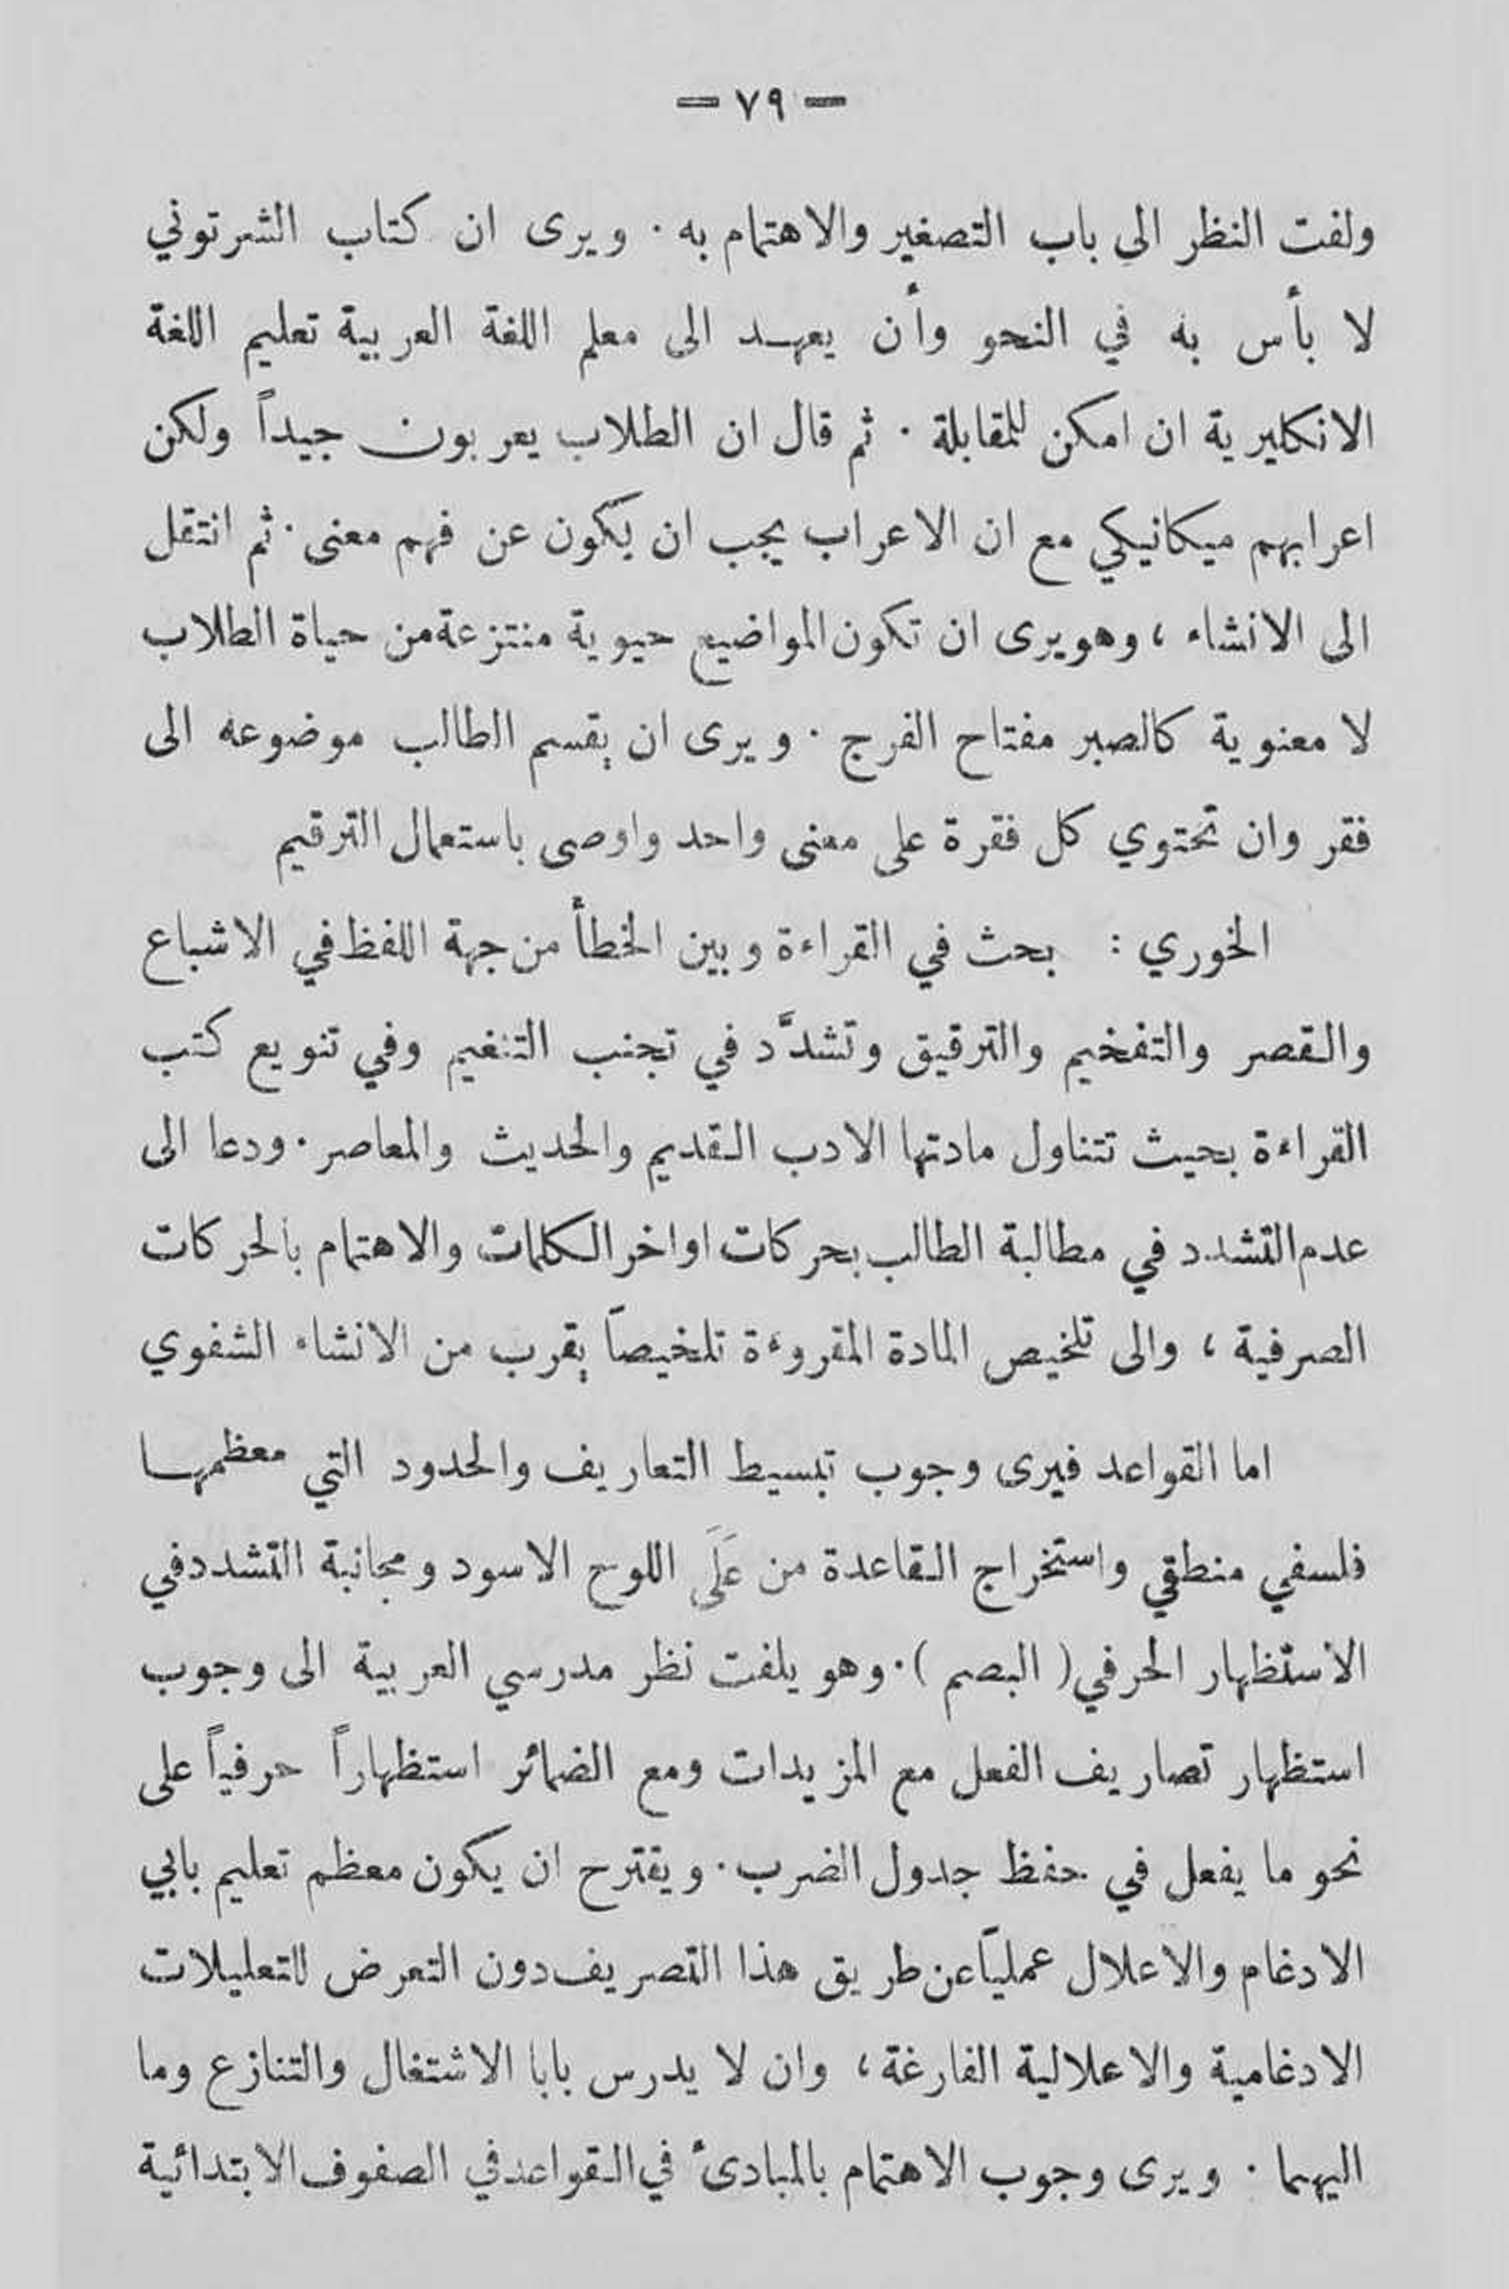 — ٧٩ —
ولفت النظر الى باب التصغير والاهتمام به . ويرى ان كتاب الشرتوني
لا بأس به في النحو وأن يعهد الى معلم اللغة العربية تعليم اللغة
الانكليرية ان امكن للمقابلة . ثم قال ان الطلاب يعربون جيداً ولكن
اعرابهم ميكانيكي مع ان الاعراب يجب ان يكون عن فهم معنى . ثم انتقل
الى الانشاء ، وهو يرى ان تكون المواضيع حيوية منتزعة من حياة الطلاب
لا معنوية كالصبر مفتاح الفرج . ويرى ان يقسم الطالب موضوعه الى
فقر وان تحتوي كل فقرة على معنى واحد واوصى باستعمال الترقيم
الخوري : بحث في القراءة وبين الخطأ من جهة اللفظ في الاشباع
والقصر والتفخيم والترقيق وتشدَّد في تجنب التنغيم وفي تنويع كتب
القراءة بحيث تتناول مادتها الادب القديم والحديث والمعاصر . ودعا الى
عدم التشدد في مطالبة الطالب بحركات اواخر الكلمات والاهتمام بالحركات
الصرفية ، والى تلخيص المادة المقروءة تلخيصاً يقرب من الانشاء الشفوي
اما القواعد فيرى وجوب تبسيط التعاريف والحدود التي معظمها
فلسفي منطقي واستخراج القاعدة من عَلَى اللوح الاسود ومجانبة التشدد في
الاستظهار الحرفي ( البصم ) . وهو يلفت نظر مدرسي العربية الى وجوب
استظهار تصاريف الفعل مع المزيدات ومع الضمائر استظهاراً حرفياً على
نحو ما يفعل في حفظ جدول الضرب . ويقترح ان يكون معظم تعليم بابي
الادغام والاعلال عملياً عن طريق هذا التصريف دون التعرض للتعليلات
الادغامية والاعلالية الفارغة ، وان لا يدرس بابا الاشتغال والتنازع وما
اليهما . ويرى وجوب الاهتمام بالمبادىء في القواعد في الصفوف الابتدائية